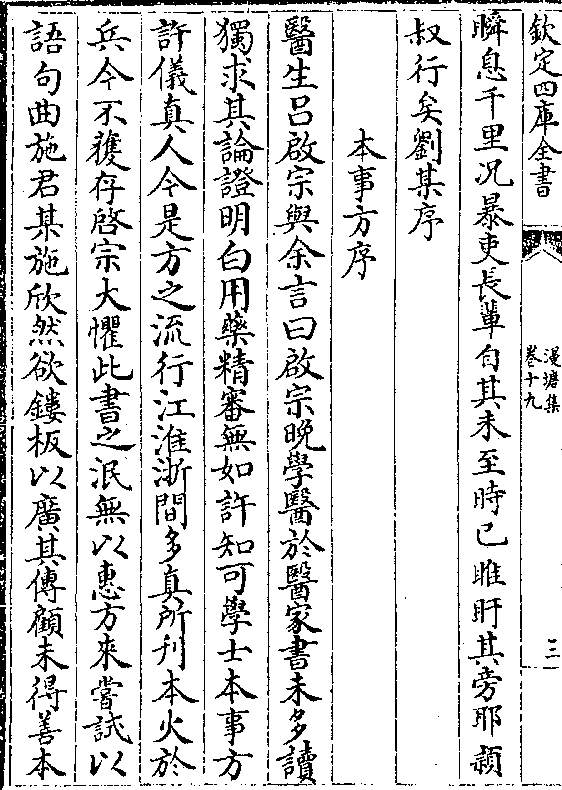 欽定四庫全書
漫塘集
卷十九
三
瞬息千里况暴吏長輩自其未至時已睢盱其旁耶潁
叔行矣劉某序
本事方序
醫生吕啟宗與余言曰啟宗晚學醫於醫家書未多讀
獨求其論證明白用藥精審無如許知可學士本事方
許儀真人今是方之流行江淮浙間多真所刋本火於
兵今不獲存啓宗大懼此書之泯無以惠方來嘗試以
語句曲施君某施欣然欲鏤板以廣其傳顧未得善本